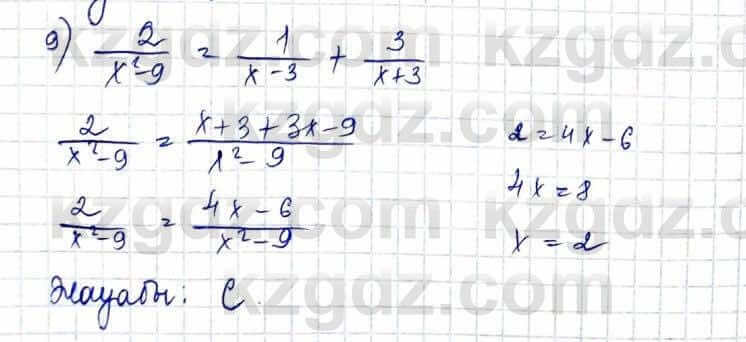 9) 2/(x²-9) = 1/(x-3) + 3/(x+3)
2/(x²-9) = (x+3+3x-9)/(x²-9)
2/(x²-9) = (4x-6)/(x²-9)
2 = 4x - 6
4x = 8
x = 2
Жауабы: C.
kzgdz.com
kzgdz.com
kzgdz.com
kzgdz.com